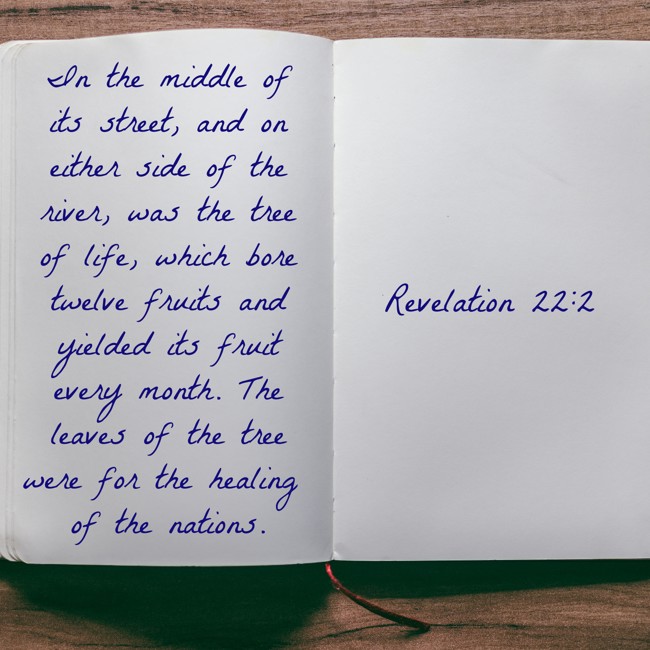 In the middle of
its street, and on
either side of the
river, was the tree
of life, which bore
twelve fruits and
yielded its fruit
every month. The
leaves of the tree
were for the healing
of the nations.
Revelation 22:2